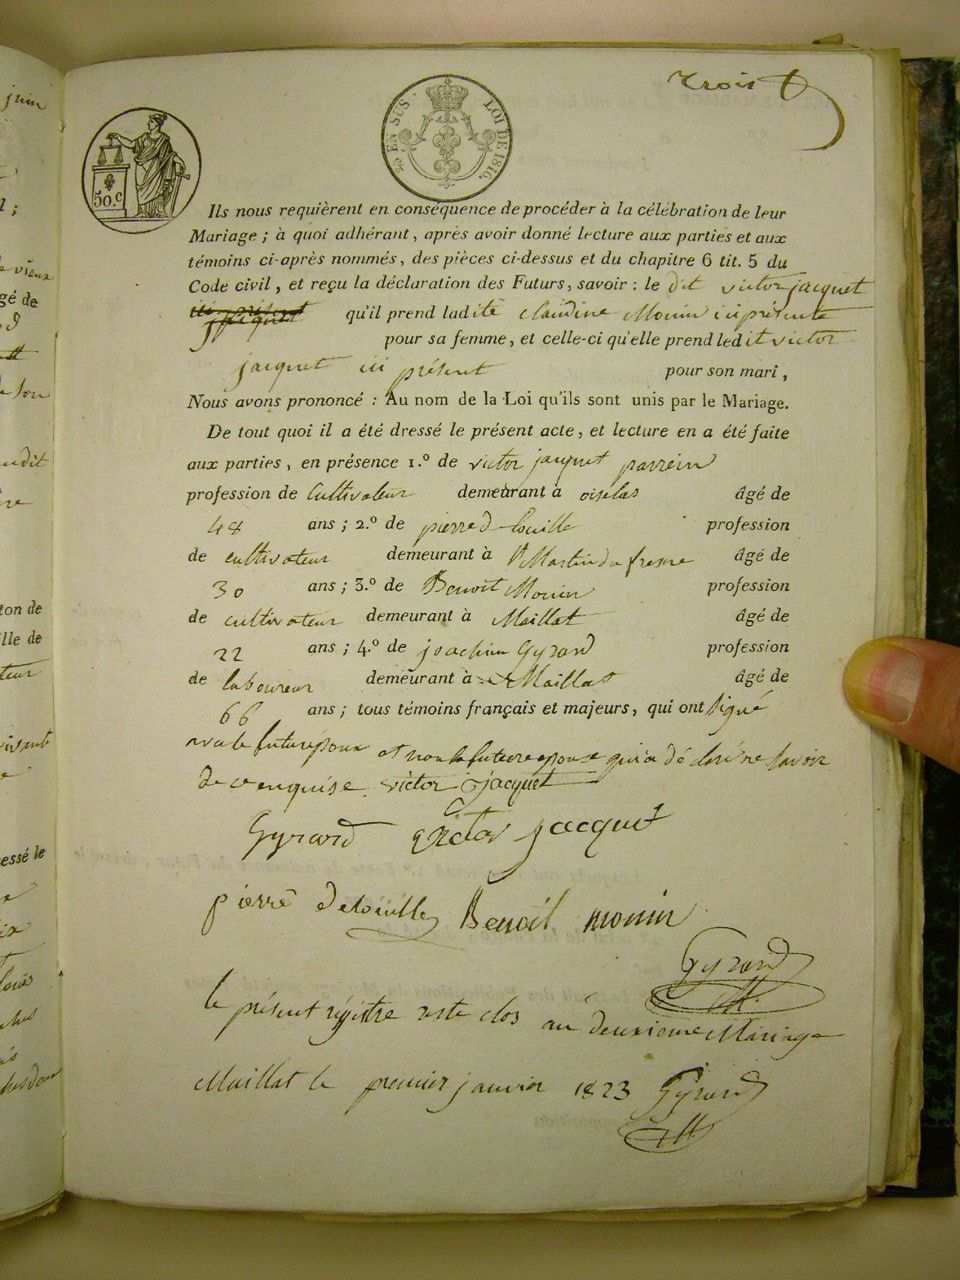 trois
50.c
EN SUS LOI DE 1816.
Ils nous requièrent en conséquence de procéder à la célébration de leur
Mariage ; à quoi adhérant, après avoir donné lecture aux parties et aux
témoins ci-après nommés, des pièces ci-dessus et du chapitre 6 tit. 5 du
Code civil, et reçu la déclaration des Futurs, savoir : le dit victor jacquet
qu'il prend ladite claudine Monin ici présente
pour sa femme, et celle-ci qu'elle prend ledit victor
jacquet ici présent pour son mari,
Nous avons prononcé : Au nom de la Loi qu'ils sont unis par le Mariage.
De tout quoi il a été dressé le présent acte, et lecture en a été faite
aux parties, en présence 1.º de victor jacquet parrein
profession de Cultivateur demeurant à oiselas âgé de
48 ans ; 2.º de pierre delouille profession
de cultivateur demeurant à St Martin du fresne âgé de
30 ans ; 3.º de Benoit Monin profession
de cultivateur demeurant à Maillat âgé de
22 ans ; 4.º de joachim Gyrard profession
de laboureur demeurant à Maillat âgé de
66 ans ; tous témoins français et majeurs, qui ont signé
avec le futur époux et non la future epouse qui a déclaré ne savoir
de ce enquise. victor jacquet
Gyrard victor jacquet
pierre delouille Benoit monin
Gyrard
le présent régistre reste clos au deuxieme Mariage
Maillat le premier janvier 1823 Gyrard